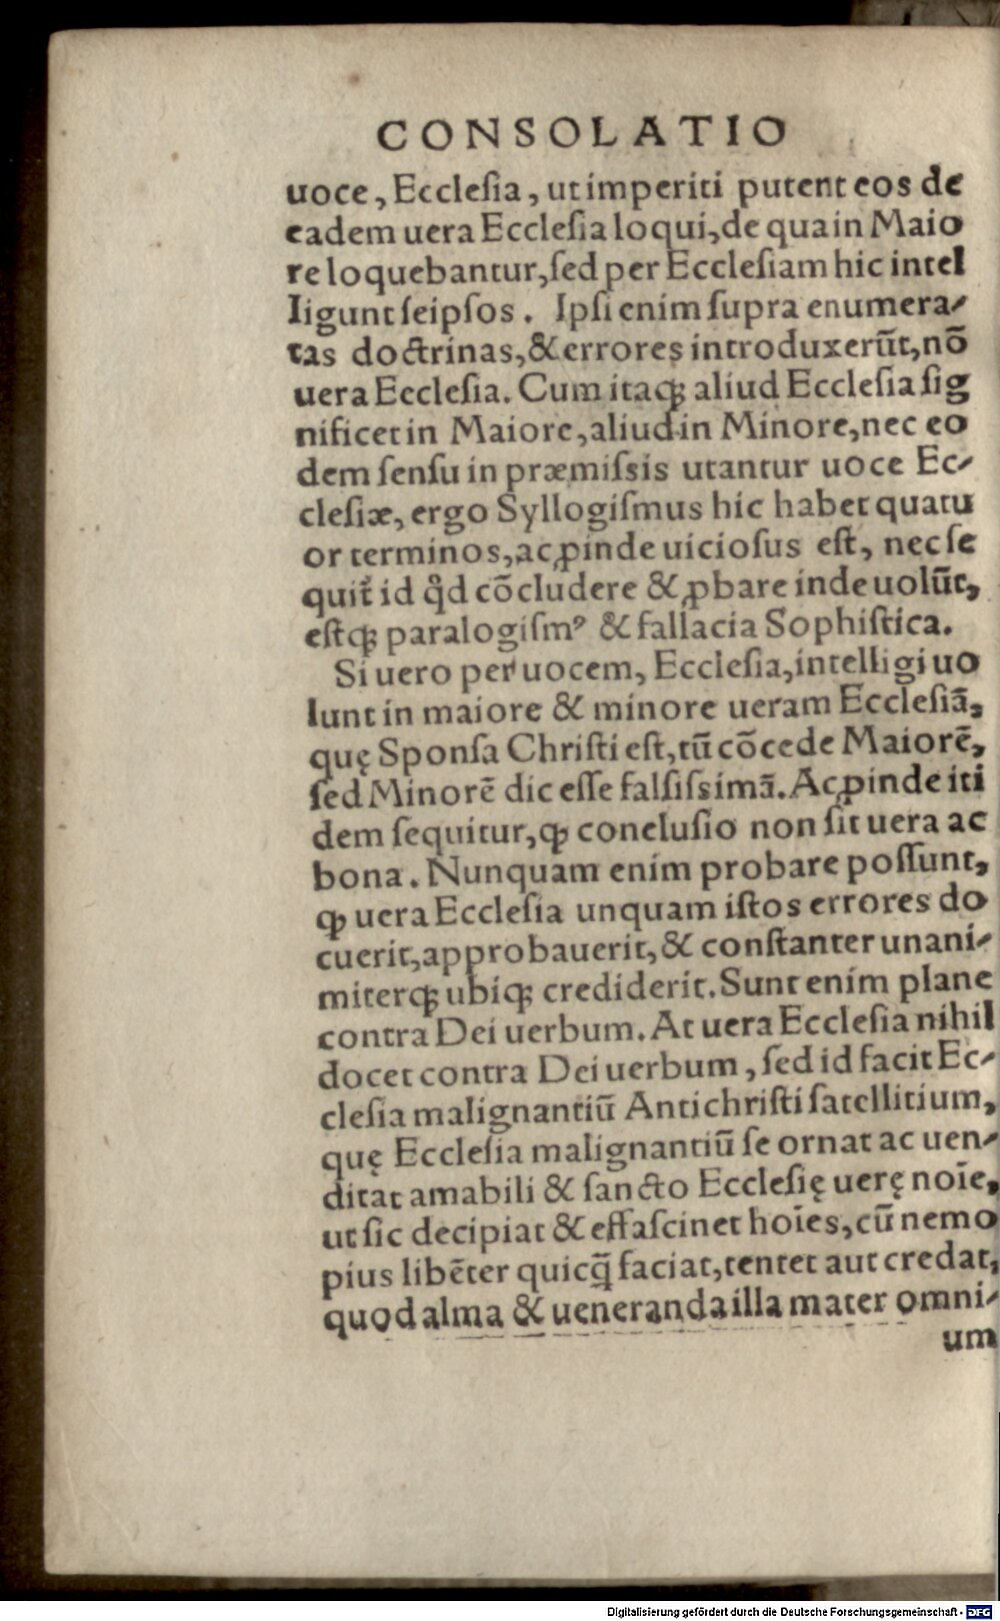 CONSOLATIO
uoce, Ecclesia, ut imperiti putent eos de
eadem uera Ecclesia loqui, de qua in Maio
re loquebantur, sed per Ecclesiam hic intel
ligunt seipsos. Ipsi enim supra enumera-
tas doctrinas, & errores introduxerũt, nõ
uera Ecclesia. Cum itaqꝫ aliud Ecclesia sig
nificet in Maiore, aliud in Minore, nec eo
dem sensu in præmissis utantur uoce Ec-
clesiæ, ergo Syllogismus hic habet quatu
or terminos, ac ꝓinde uiciosus est, nec se
quit᷑ id qd̓ cõcludere & ꝓbare inde uolũt,
estqꝫ paralogismꝰ & fallacia Sophistica.
Si uero per uocem, Ecclesia, intelligi uo
lunt in maiore & minore ueram Ecclesiã,
quę Sponsa Christi est, tũ cõcede Maiorẽ,
sed Minorẽ dic esse falsissimã. Ac ꝓinde iti
dem sequitur, ꝙ conclusio non sit uera ac
bona. Nunquam enim probare possunt,
ꝙ uera Ecclesia unquam istos errores do
cuerit, approbauerit, & constanter unani-
miterqꝫ ubiqꝫ crediderit. Sunt enim plane
contra Dei uerbum. At uera Ecclesia nihil
docet contra Dei uerbum, sed id facit Ec-
clesia malignantiũ Antichristi satellitium,
quę Ecclesia malignantiũ se ornat ac uen-
ditat amabili & sancto Ecclesię uerę noĩe,
ut sic decipiat & effascinet hoĩes, cũ nemo
pius libẽter quicq̃ faciat, tentet aut credat,
quod alma & ueneranda illa mater omni-
um
Digitalisierung gefördert durch die Deutsche Forschungsgemeinschaft - DFG